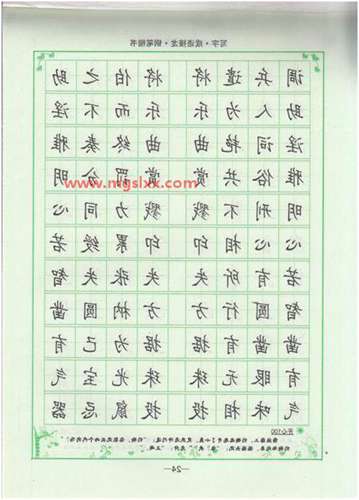 写字·成语接龙·钢笔楷书
调兵遣将 将伯之助
助人为乐 乐而不淫
淫词艳曲 曲终奏雅
雅俗共赏 赏罚分明
www.mgslxx.com
明刑不戮 戮力同心
心心相印 印累绶若
若有所失 失张失智
智圆行方 方枘圆凿
凿凿有据 据为己有
有眼无珠 珠光宝气
气味相投 投鼠忌器
开心100
—24—